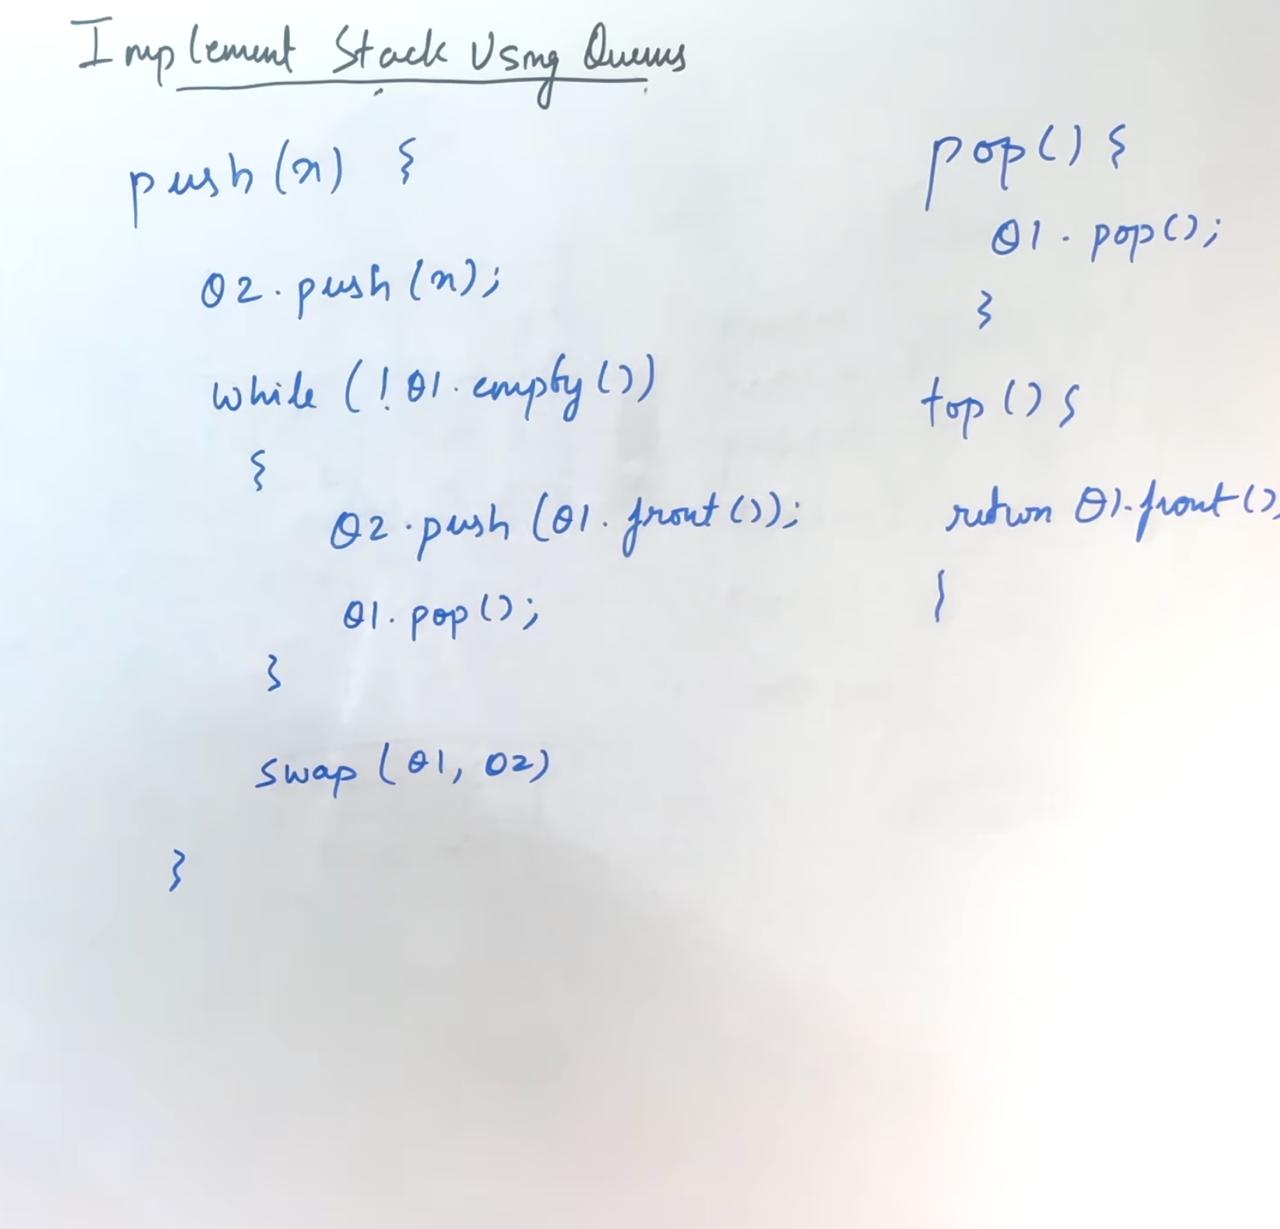 Implement Stack Using Queues
push(x) {
Q2.push(x);
while (!Q1.empty())
{
Q2.push(Q1.front());
Q1.pop();
}
swap(Q1, Q2)
}
pop() {
Q1.pop();
}
top() {
return Q1.front()
}